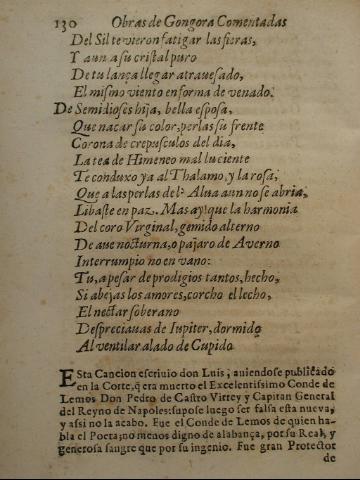 130 Obras de Gongora Comentadas
Del Sil te vieron fatigar las fieras,
Y aun a su cristal puro
De tu lança llegar atrauesado,
El mismo viento en forma de venado.
De Semidioses hija, bella esposa,
Que nacar su color, perlas su frente
Corona de crepusculos del dia,
La tea de Himeneo mal luciente
Te conduxo ya al Thalamo, y la rosa,
Que a las perlas del Alua aun no se abria,
Libaste en paz. Mas ay! que la harmonia
Del coro Virginal, gemido alterno
De aue nocturna, o pajaro de Averno
Interrumpio no en vano:
Tu, a pesar de prodigios tantos, hecho,
Si abejas los amores, corcho el lecho,
El nectar soberano
Despreciauas de Iupiter, dormido
Al ventilar alado de Cupido
Esta Cancion escriuio don Luis, auiendose publicado
en la Corte, q̃ era muerto el Excelentissimo Conde de
Lemos Don Pedro de Castro Virrey y Capitan General
del Reyno de Napoles: supose luego ser falsa esta nueva,
y assi no la acabo. Fue el Conde de Lemos de quien ha-
bla el Poeta; no menos digno de alabança, por su Real, y
generosa sangre que por su ingenio. Fue gran Protector
de